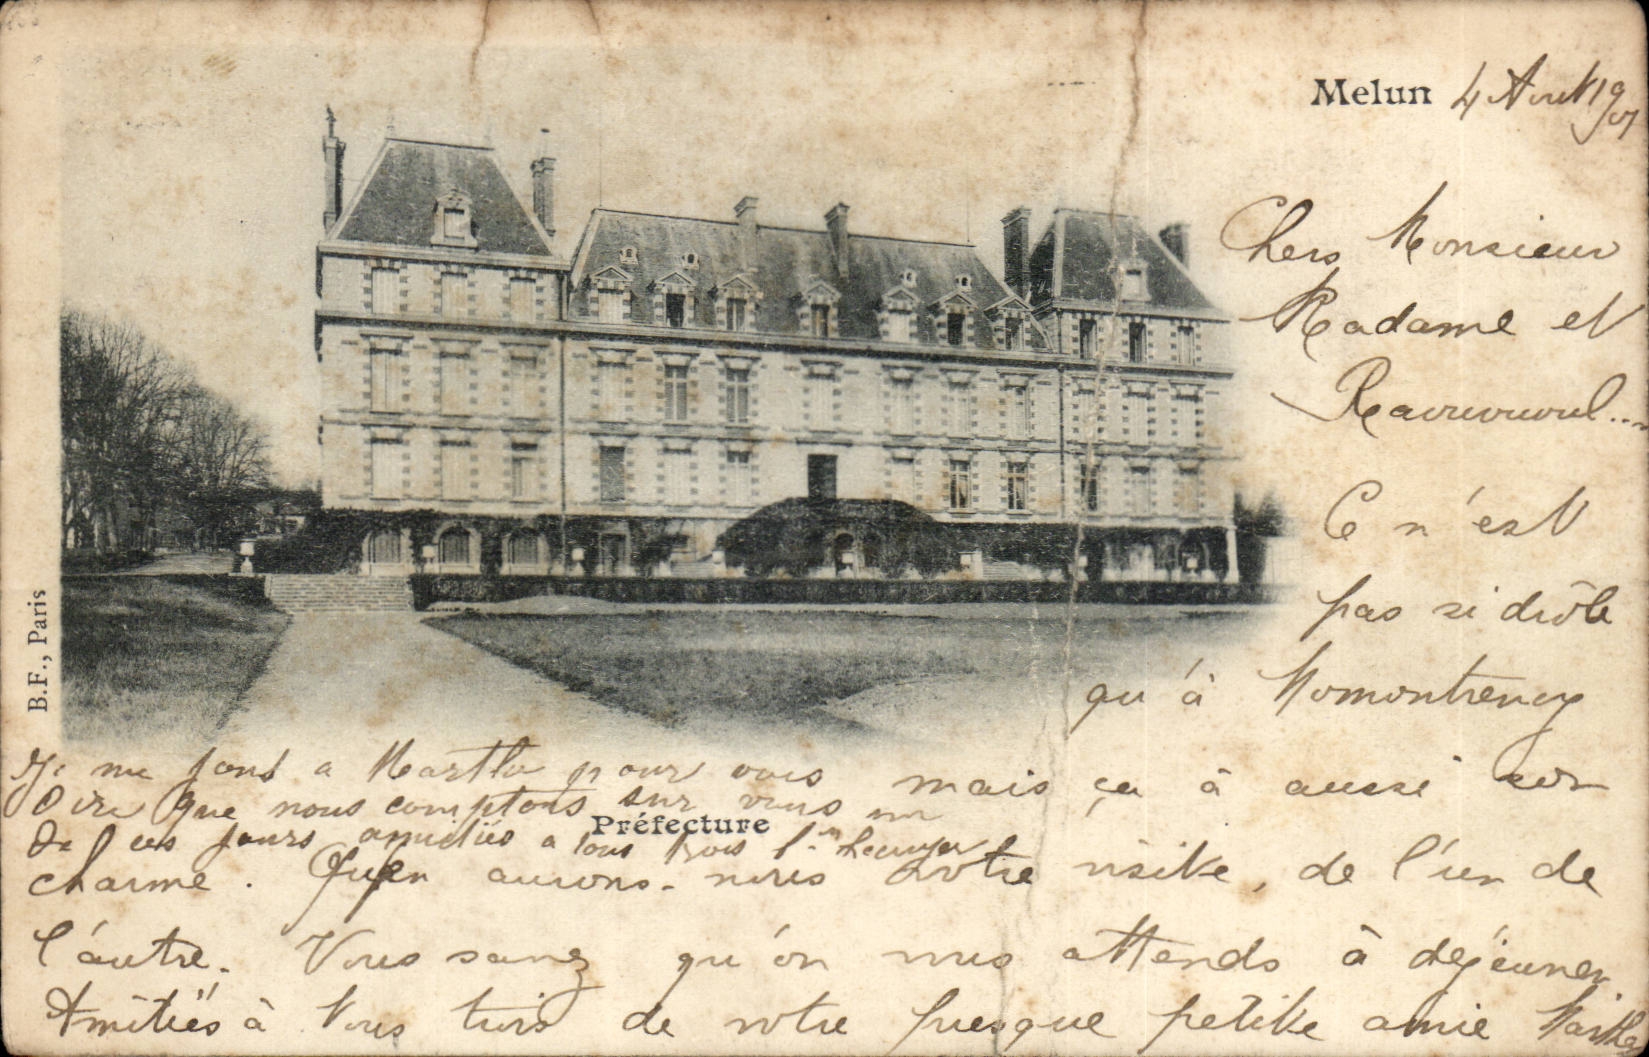 Melun 4 Avril 1901
Chers Monsieur
Madame et
C n'est
pas si drôle
qu'à Momontrency
mais ça à aussi son
charme. Quen aurons-nous votre visite, de l'un de
l'autre. Vous savez qu'on vous attends à déjeuner
Amitiés à Vous trois de votre presque petite amie Marthe
Je me joins a Martha pour vous
dire que nous comptons sur vous un
de ces jours amitiés a tous trois
Préfecture
B.F., Paris